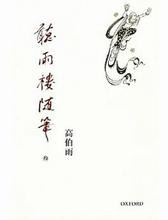 聽雨樓隨筆
叁
高伯雨
OXFORD